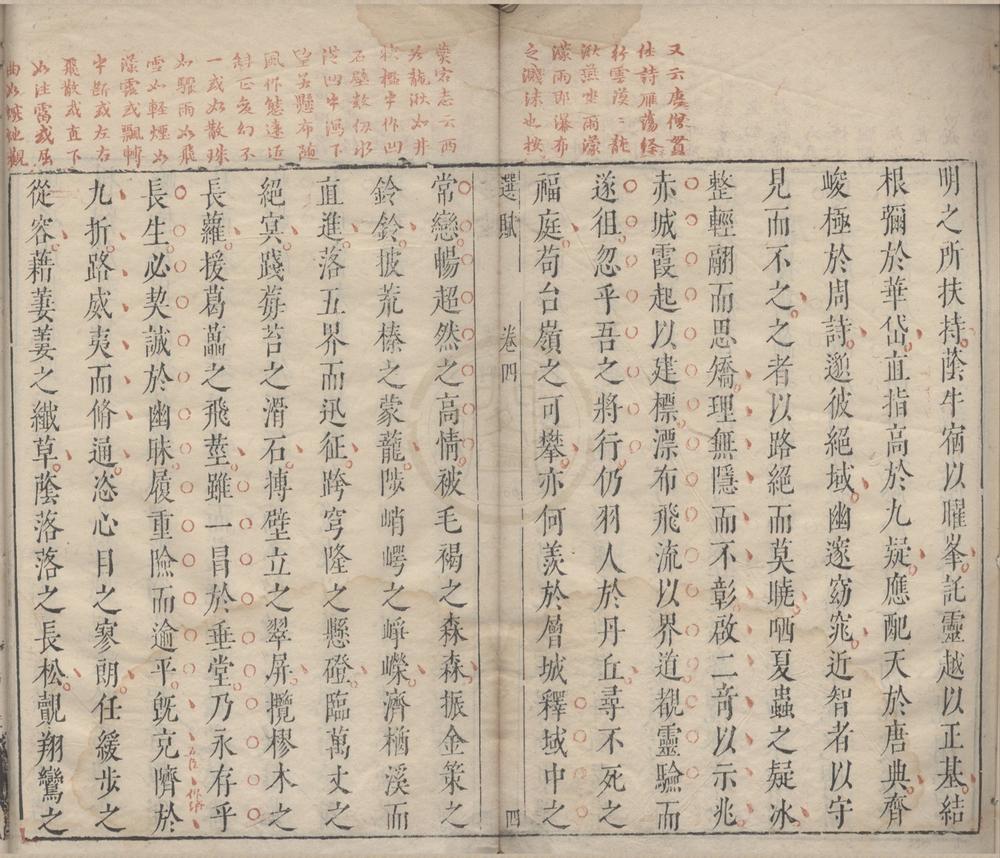 又云唐僧貫
休詩雁蕩經
行雲漠漠龍
湫宴坐雨濛
濛雨即瀑布
之濺沫也按
明之所扶持蔭牛宿以曜峯託靈越以正基結
根彌於華岱直指高於九疑應配天於唐典齊
峻極於周詩邈彼絕域幽邃窈窕近智者以守
見而不之之者以路絕而莫曉哂夏蟲之疑冰
整輕翮而思矯理無隱而不彰啟二竒以示兆
赤城霞起以建標瀑布飛流以界道覩靈驗而
遂徂忽乎吾之將行仍羽人於丹丘尋不死之
福庭苟台嶺之可攀亦何羨於層城釋域中之
選賦
卷四
四
志云西
龍湫如井
中作凹
石壁數仞水
從凹中瀉下
望若懸布隨
風作態遠近
斜正變幻不
一或如散珠
如驟雨如飛
雪如輕煙如
濛霧或飄轉
中斷或左右
飛散或直下
如注霤或屈
曲如蜿蜒觀
常戀暢超然之高情被毛褐之森森振金策之
鈴鈴披荒榛之蒙蘢陟峭崿之崢嶸濟楢溪而
直進落五界而迅征跨穹隆之懸磴臨萬丈之
絕冥踐莓苔之滑石摶壁立之翠屏攬樛木之
長蘿援葛藟之飛莖雖一冒於垂堂乃永存乎
長生必契誠於幽昧履重險而逾平旣克隮於
九折路威夷而脩通恣心目之寥朗任緩步之
從容藉萋萋之纖草蔭落落之長松覿翔鸞之